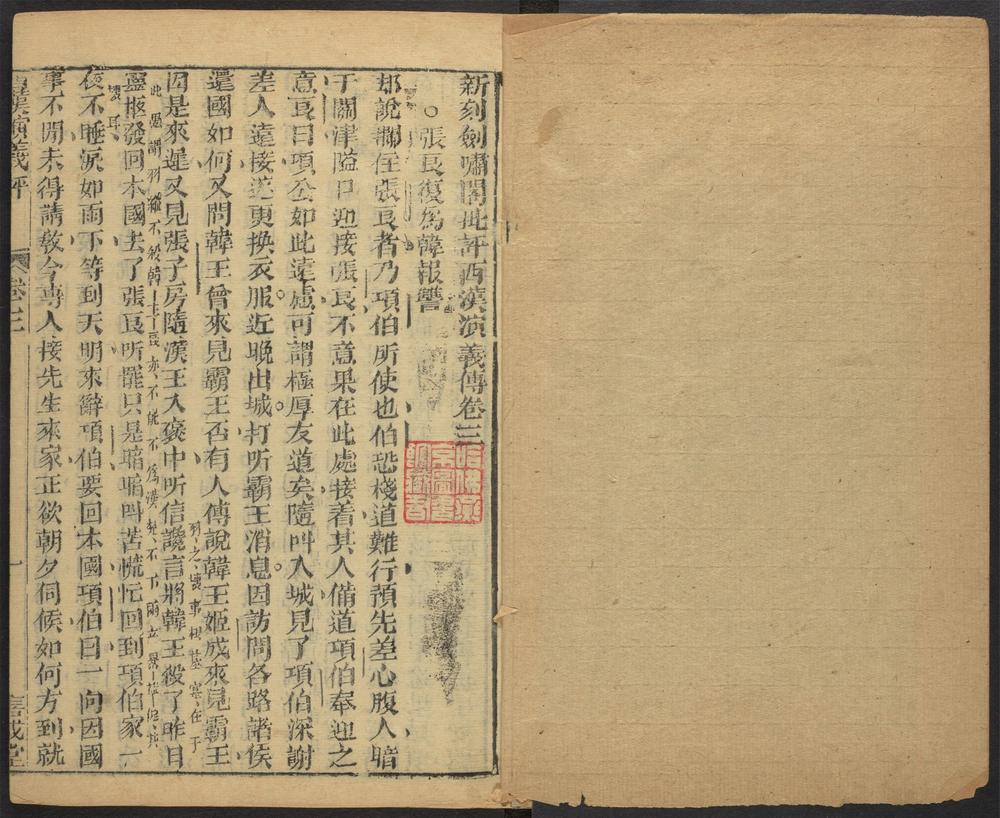 新刻劍嘯閣批評西漢演義傳卷三
○張良復爲韓報讐
却說攔住張良者乃項伯所使也伯恐棧道難行預先差心腹人暗
于關津隘口迎接張良不意果在此處接着其人備道項伯奉迎之
意良曰項公如此遠慮可謂極厚友道矣隨叫入城見了項伯深謝
差人遠接遂更換衣服近晚出城打听霸王消息因訪問各路諸侯
還國如何又問韓王曾來見霸王否有人傳說韓王姬成來見霸王
羽之壞事根基寔在于
因是來遲又見張子房隨漢王入褒中听信讒言將韓王殺了昨日
此愚謂羽縱不殺韓王良亦不能不爲漢
靈柩發回本國去了張良听罷只是暗暗叫苦慌忙回到項伯家一
壞耳
夜不睡淚如雨下等到天明來辭項伯要回本國項伯曰一向因國
事不閒未得請教今專人接先生來家正欲朝夕伺候如何方到就
西漢演義評
卷三
一